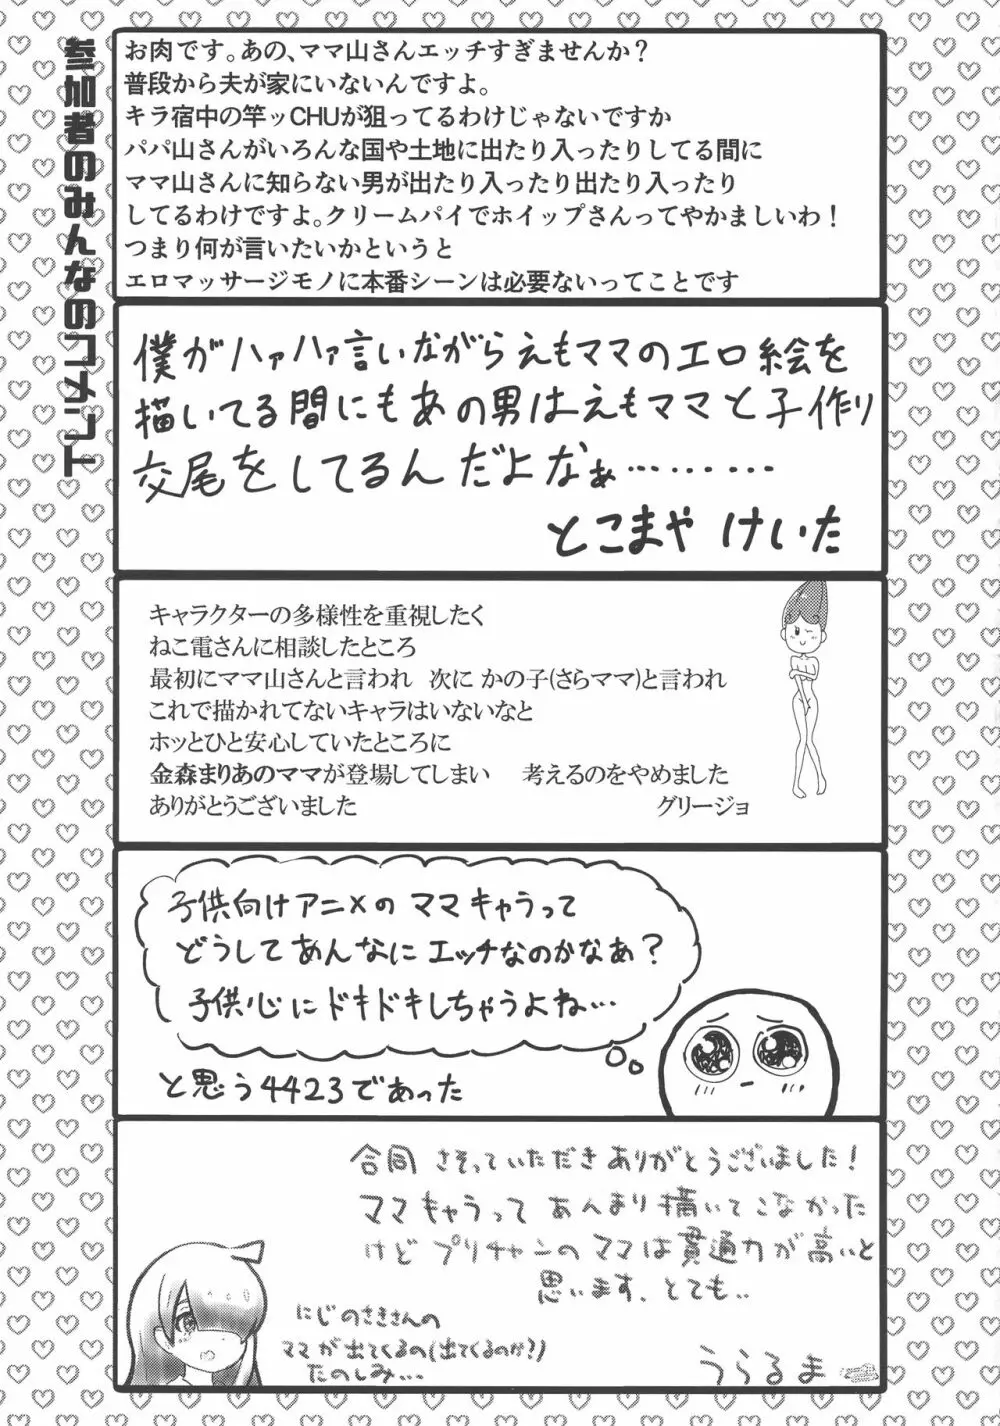 参加者のみんなのコメント
お肉です。あの、ママ山さんエッチすぎませんか？
普段から夫が家にいないんですよ。
キラ宿中の竿ッCHUが狙ってるわけじゃないですか
パパ山さんがいろんな国や土地に出たり入ったりしてる間に
ママ山さんに知らない男が出たり入ったり出たり入ったり
してるわけですよ。クリームパイでホイップさんってやかましいわ！
つまり何が言いたいかというと
エロマッサージモノに本番シーンは必要ないってことです
僕がハァハァ言いながらえもママのエロ絵を
描いてる間にもあの男はえもママと子作り
交尾をしてるんだよなぁ………
とこまや けいた
キャラクターの多様性を重視したく
ねこ電さんに相談したところ
最初にママ山さんと言われ 次に かの子(さらママ)と言われ
これで描かれてないキャラはいないなと
ホッとひと安心していたところに
金森まりあのママが登場してしまい 考えるのをやめました
ありがとうございました グリージョ
子供向けアニメのママキャラって
どうしてあんなにエッチなのかなあ？
子供心にドキドキしちゃうよね…
と思う4423であった
合同 さそっていただきありがとうございました！
ママキャラって あんまり描いてこなかった
けど プリチャンのママは貫通力が高いと
思います、とても..
にじのさきさんの
ママが出てくるの(出てくるのか?)
たのしみ…
うらるま